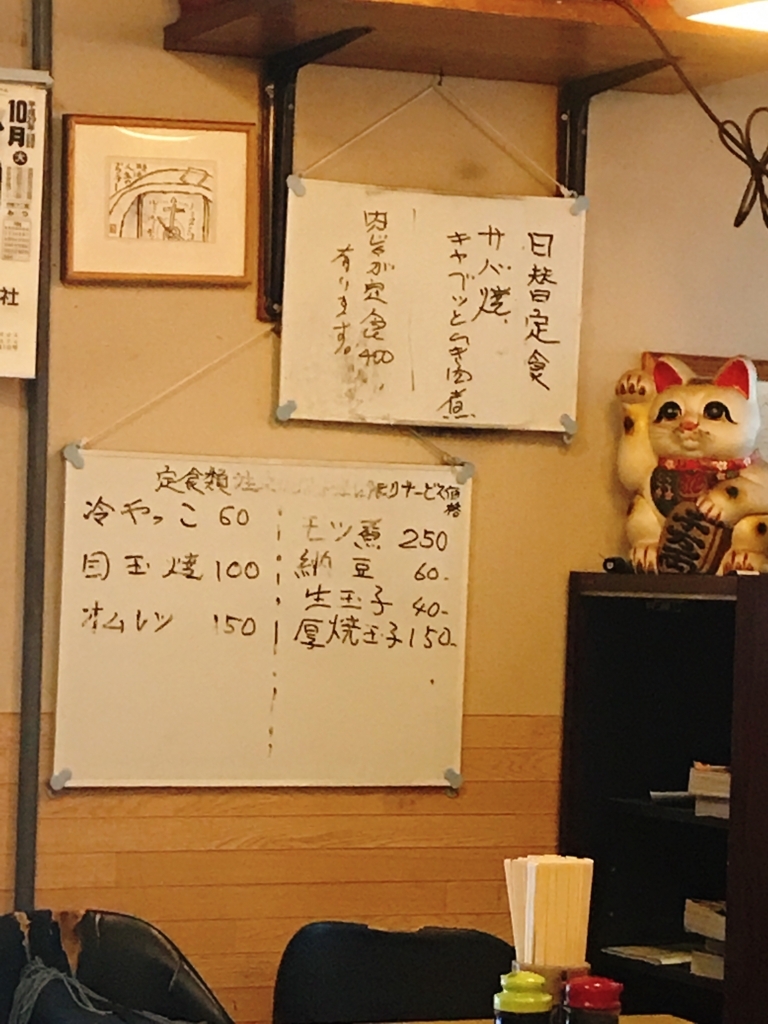 10月
社
日替定食
サバ焼、
キャベツとひき肉煮
肉生が定食400
有ります。
定食類注
限りサービス価格
冷やっこ 60
目玉焼 100
オムレツ 150
モツ煮 250
納豆 60-
生玉子 40-
厚焼玉子 150-